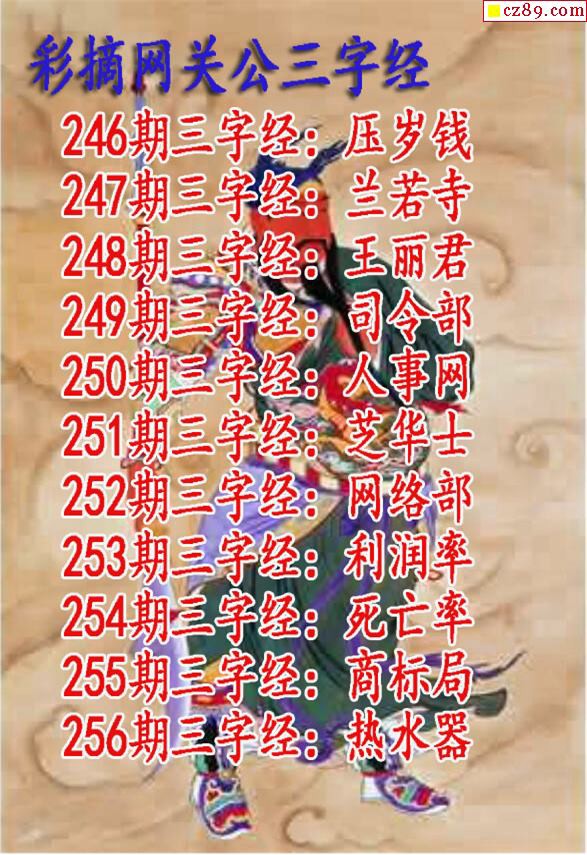 cz89.com
彩摘网关公三字经
246期三字经：压岁钱
247期三字经：兰若寺
248期三字经：王丽君
249期三字经：司令部
250期三字经：人事网
251期三字经：芝华士
252期三字经：网络部
253期三字经：利润率
254期三字经：死亡率
255期三字经：商标局
256期三字经：热水器